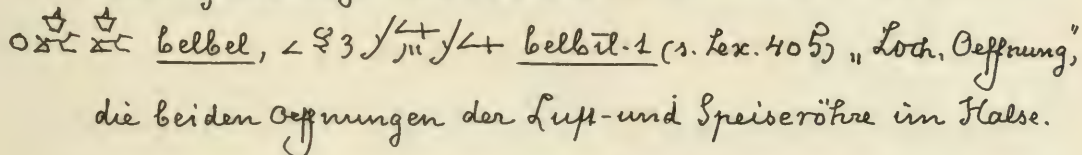 belbel, belbīl.1 (s. Lex. 405) „Loch, Oeffnung,"
die beiden Oeffnungen der Luft- und Speiseröhre im Halse.